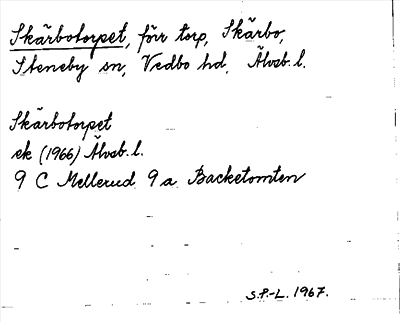 Skärbotorpet, förr torp, Skärbo,
Steneby sn, Vedbo hd, Älvsb. l.
Skärbotorpet
ek (1966) Älvsb. l.
9 C Mellerud 9 a Backetomten
S.P.-L. 1967.